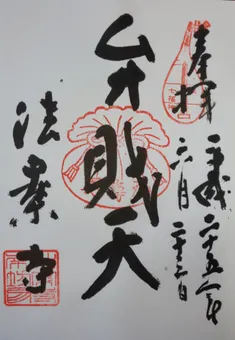 奉拝
平成二十五年
六月二十三日
弁財天
法案寺